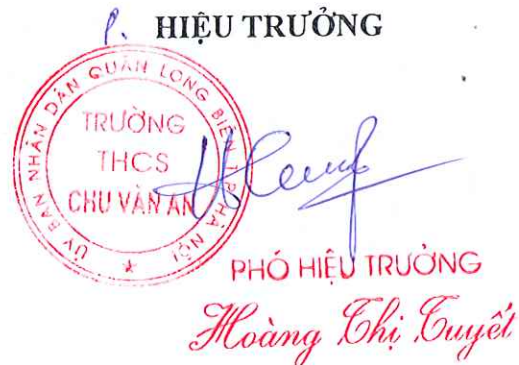 P. HIỆU TRƯỞNG
ỦY BAN NHÂN DÂN QUẬN LONG BIÊN TP. HÀ NỘI
TRƯỜNG
THCS
CHU VĂN AN
PHÓ HIỆU TRƯỞNG
Hoàng Thị Tuyết